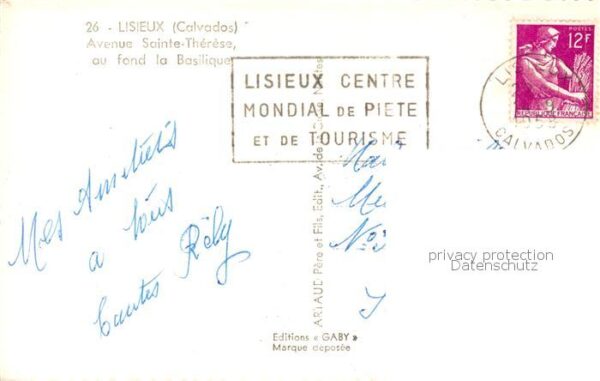 26 - LISIEUX (Calvados)
Avenue Sainte-Thérèse,
au fond la Basilique
LISIEUX CENTRE
MONDIAL DE PIETE
ET DE TOURISME
POSTES
12F
REPUBLIQUE FRANÇAISE
CALVADOS
Mes Amitiés
a tous
ARTAUD Père et Fils, Edit., Av. de
privacy protection
Datenschutz
Editions « GABY »
Marque déposée